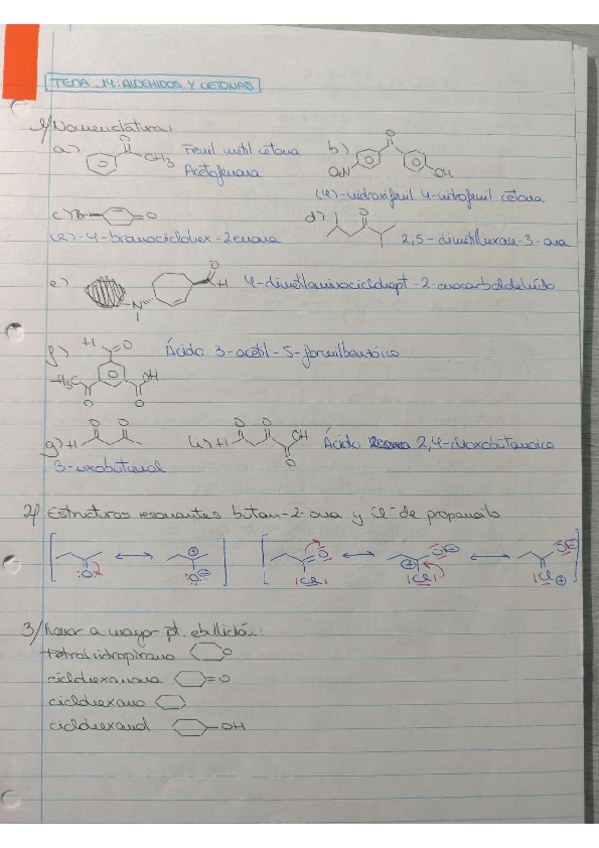 TEMA 14: ALDEHIDOS Y CETONAS
1/ Nomenclatura:
a) O CH3 Fenil metil cetona b) O
Acetofenona O2N OH
(4)-hidroxifenil 4-nitrofenil cetona
c) Br =O d) O
(R)-4-bromociclohex-2-enona 2,5-dimetilhexan-3-ona
e) O H 4-dimetilaminociclohept-2-enocarbaldehído
N
f) H O Ácido 3-acetil-5-formilbenzoico
H3C OH
O O
g) H O O h) H O O OH Ácido 2,4-dioxobutanoico
O
3-oxobutanal
2/ Estructuras resonantes butan-2-ona y Cl- de propanoilo
3/ Menor a mayor pt. ebullición:
tetrahidropirano O
ciclohexanona =O
ciclohexano
ciclohexanol OH